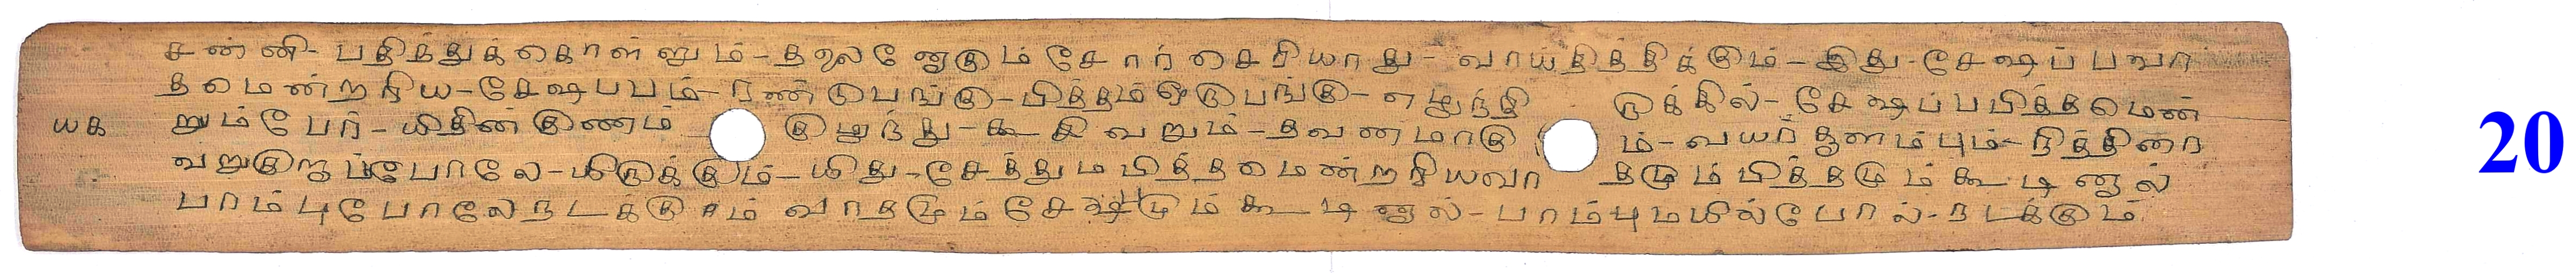 சன்னி - பதித்துக்கொள்ளும் - தலை னேகும் சோர் செரியாது - வாய்தித்திக்கும் - இது - சேஷப்பவா
தமென்றறிய - சேஷபபம் - ரண்டுபங்கு - பித்தம் ஒருபங்கு - எழுந்தி ருக்கில் - சேஷப்பபித்தமென்
யக றும் பேர் - யிதின் குணம் குழுந்து - கூசி வறும் - தவனமாகு ம் - வயர் களம்பும் - நித்திரை
வறுகுறப்போலே - யிருக்கும் - யிது - சேத்துமபித்தமென்றறியவா தமும் பித்தமும் கூடினால்
பாம்புபோலே நடக்கும் வாதமும் சேஷமும் கூடினால் - பாம்புமயில்போல் - நடக்கும்
20